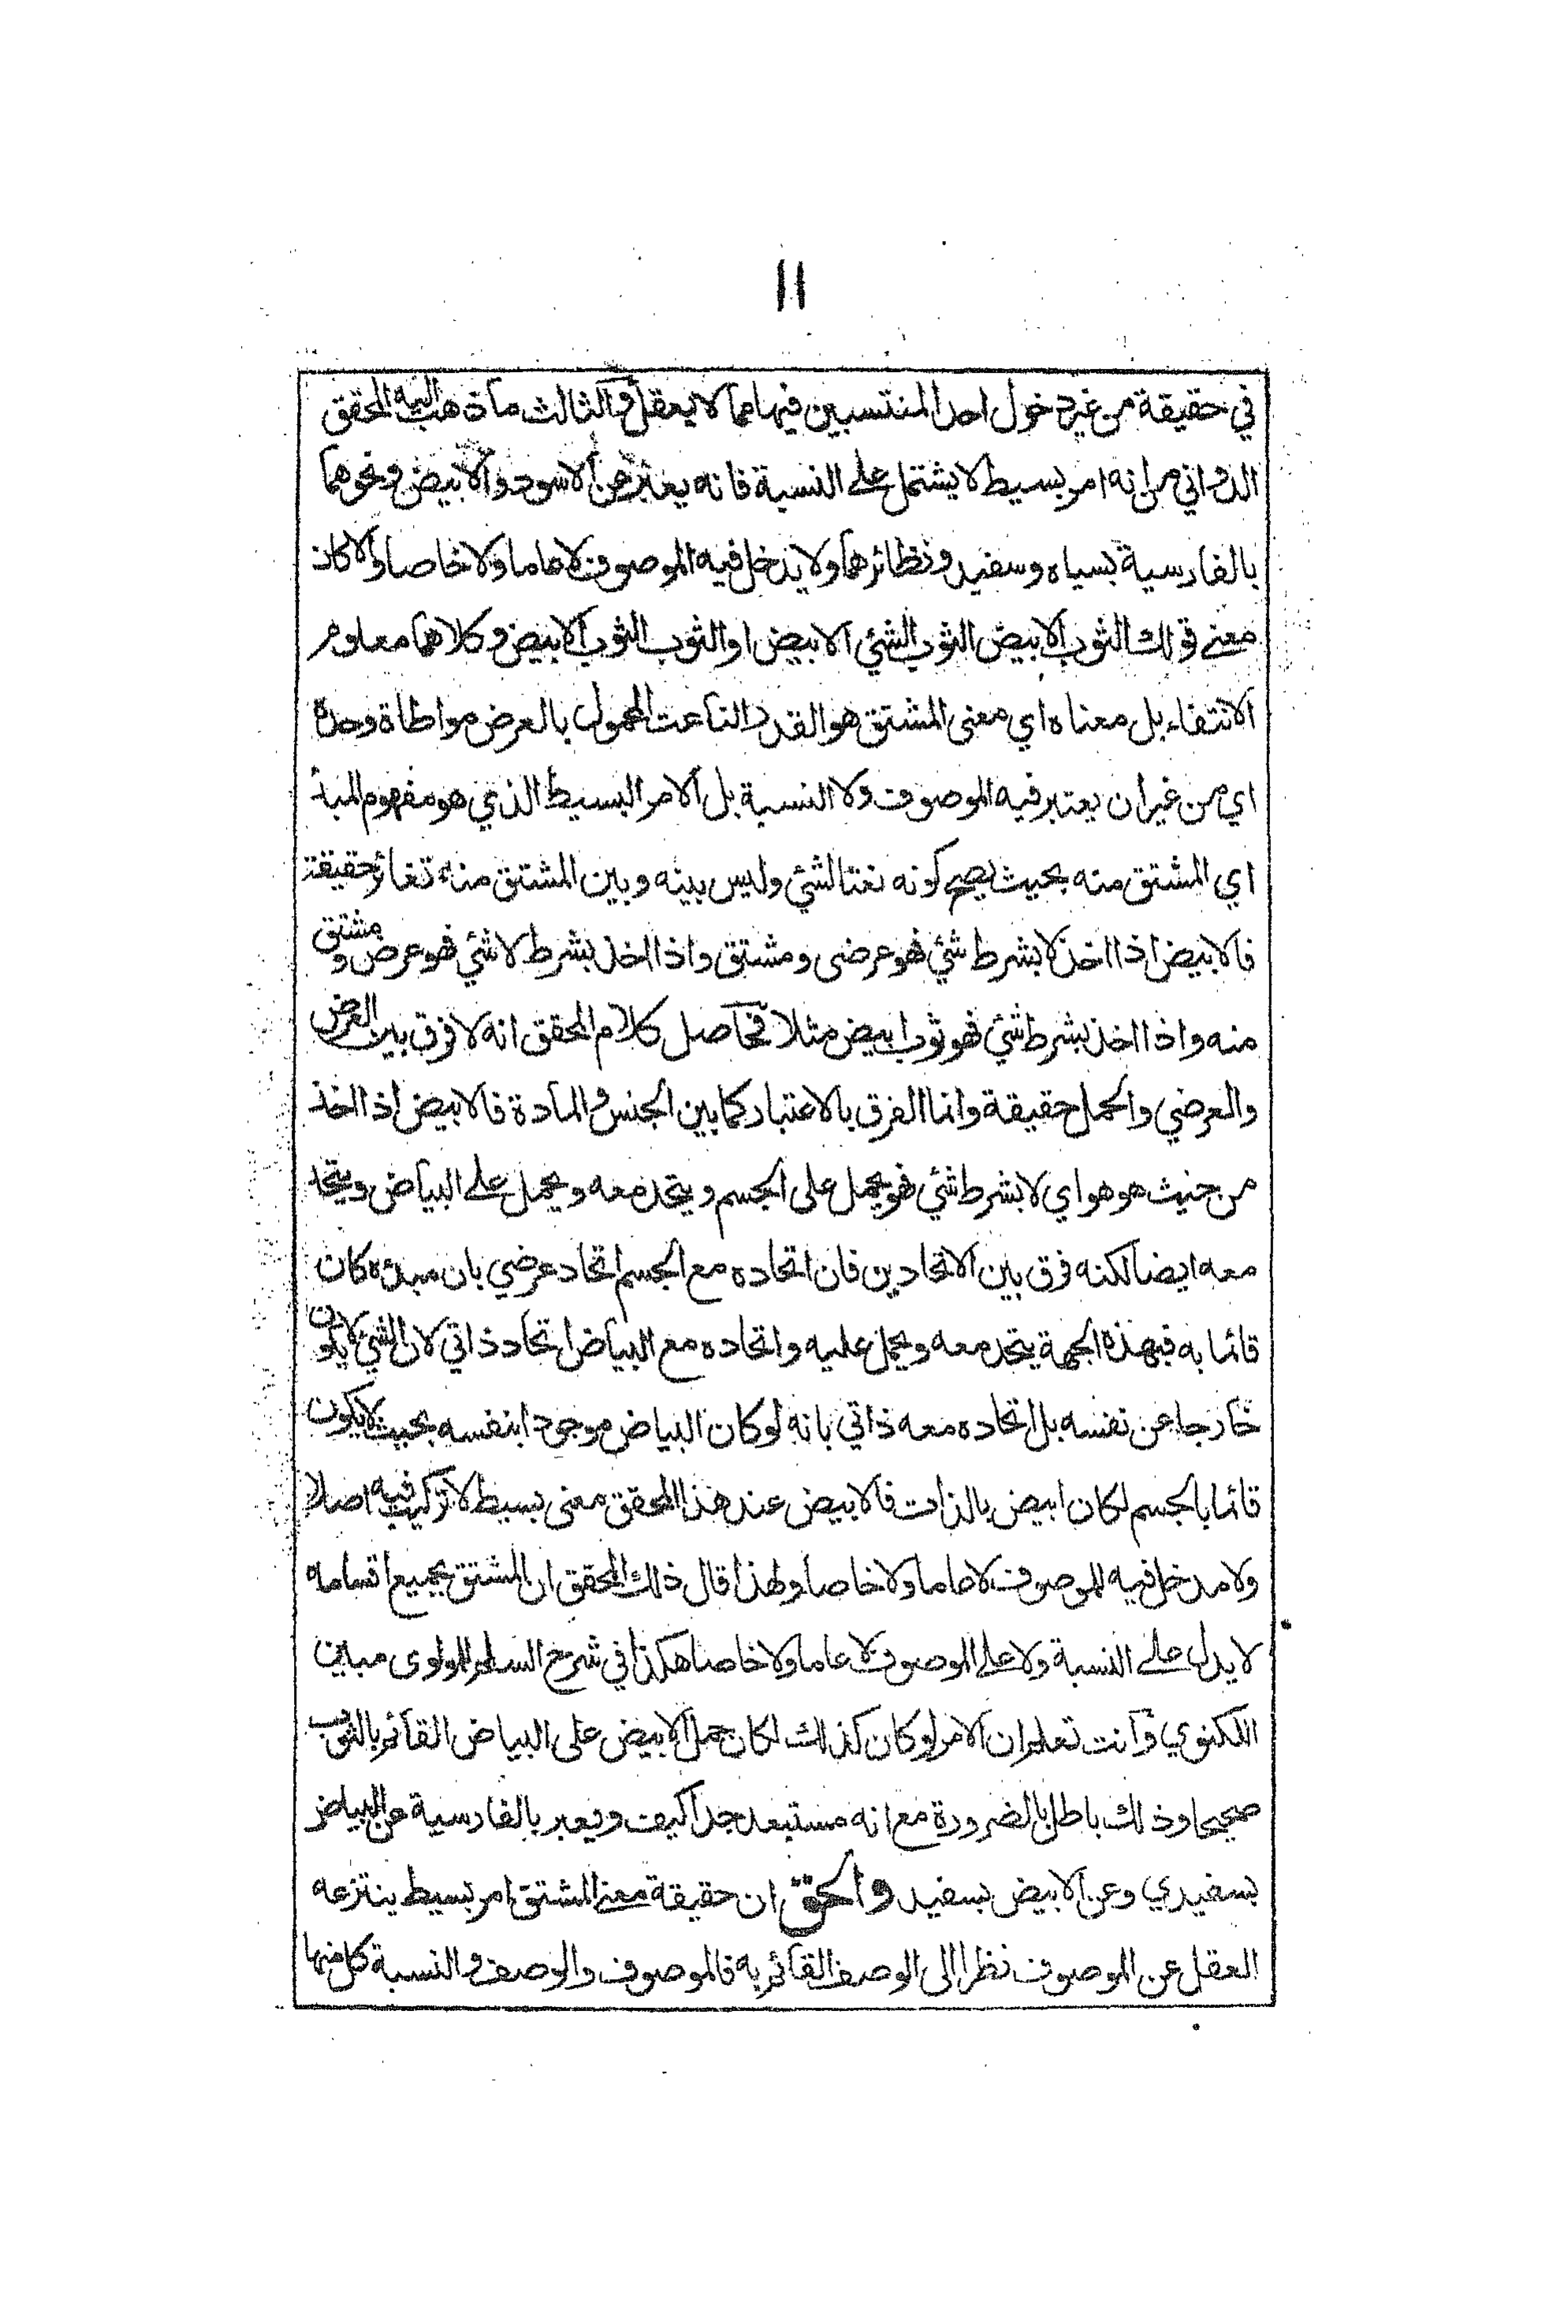 ١١
في حقيقة من غير دخول احد المنتسبين فيها مما لا يعقل والثالث ما ذهب اليه المحقق
الدواني من انه امر بسيط لا يشتمل على النسبة فانه يعبر عن الاسود والابيض ونحوهما
بالفارسية بسياه وسفيد ونظائرهما ولا يدخل فيه الموصوف لا عاما ولا خاصا والا كان
معنے قولك الثوب الابيض الثوب الشئي الابيض او الثوب الثوب الابيض وكلاهما معلوم
الانتفاء بل معناه اي معنى المشتق هو القدر الناعت المحمول بالعرض مواطاة وحده
اي من غير ان يعتبر فيه الموصوف ولا النسبة بل الامر البسيط الذي هو مفهوم المبدأ
اي المشتق منه بحيث يصح كونه نعتا لشئي وليس بينه وبين المشتق منه تغائر حقيقة
فالابيض اذا اخذ لا بشرط شئي فهو عرضى ومشتق واذا اخذ بشرط لا شئي فهو عرض ومشتق
منه واذا اخذ بشرط شئي فهو ثوب ابيض مثلا فحاصل كلام المحقق انه لا فرق بين العرض
والعرضي والمحل حقيقة وانما الفرق بالاعتبار كما بين الجنس والمادة فالابيض اذا اخذ
من حيث هو هو اي لا بشرط شئي فهو يحمل على الجسم ويتحد معه ويحمل على البياض ويتحد
معه ايضا لكنه فرق بين الاتحادين فان اتحاده مع الجسم اتحاد عرضي بان مبدؤه كان
قائما به فبهذه الجهة يتحد معه ويحمل عليه واتحاده مع البياض اتحاد ذاتي لان الشئي لا يكون
خارجا عن نفسه بل اتحاده معه ذاتي بانه لو كان البياض موجودا بنفسه بحيث لا يكون
قائما بالجسم لكان ابيض بالذات فالابيض عند هذا المحقق معنى بسيط لا تركيب فيه اصلا
ولا مدخل فيه للموصوف لا عاما ولا خاصا ولهذا قال ذلك المحقق ان المشتق بجميع اقسامه
لا يدل على النسبة ولا على الموصوف لا عاما ولا خاصا هكذا في شرح السلم للمولوى مبين
اللكنوي وانت تعلم ان الامر لو كان كذلك لكان حمل الابيض على البياض القائم بالثوب
صحيحا وذلك باطل بالضرورة مع انه مستبعد جدا كيف ويعبر بالفارسية عن البياض
بسفيدي وعن الابيض بسفيد والحق ان حقيقة معنے المشتق امر بسيط ينتزعه
العقل عن الموصوف نظرا الى الوصف القائم به فالموصوف والوصف والنسبة كل منها